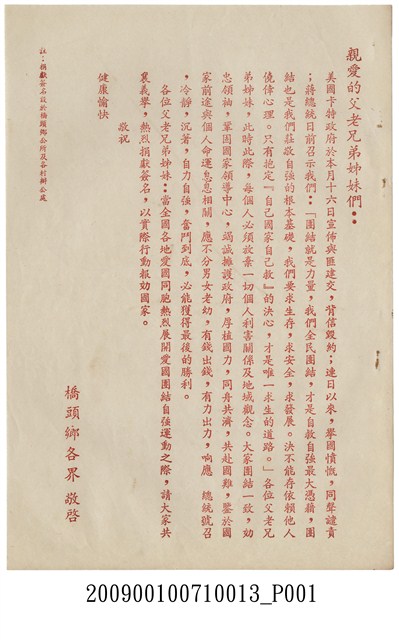 親愛的父老兄弟姊妹們：
美國卡特政府於本月十六日宣佈與匪建交，背信毀約；連日以來，舉國憤慨，同聲譴責
；蔣總統日前召示我們：「團結就是力量，我們全民團結，才是自救自強最大憑藉，團
結也是我們莊敬自強的根本基礎，我們要求生存，求安全，求發展。決不能存依賴他人
僥倖心理。只有抱定『自己國家自己救』的決心，才是唯一求生的道路。」各位父老兄
弟姊妹，此時此際，每個人必須放棄一切個人利害關係及地域觀念。大家團結一致，効
忠領袖，鞏固國家領導中心，竭誠擁護政府，厚植國力，同舟共濟，共赴國難，鑒於國
家前途與個人命運息息相關，應不分男女老幼，有錢出錢，有力出力，响應　總統號召
，冷靜，沉著，自力自強，奮鬥到底，必能獲得最後的勝利。
各位父老兄弟姊妹：當全國各地愛國同胞熱烈展開愛國團結自強運動之際，請大家共
襄義舉，熱烈捐獻簽名，以實際行動報効國家。
敬祝
健康愉快
橋頭鄉各界敬啓
註：捐獻簽名設於橋頭鄉公所及各村辦公處
200900100710013_P001